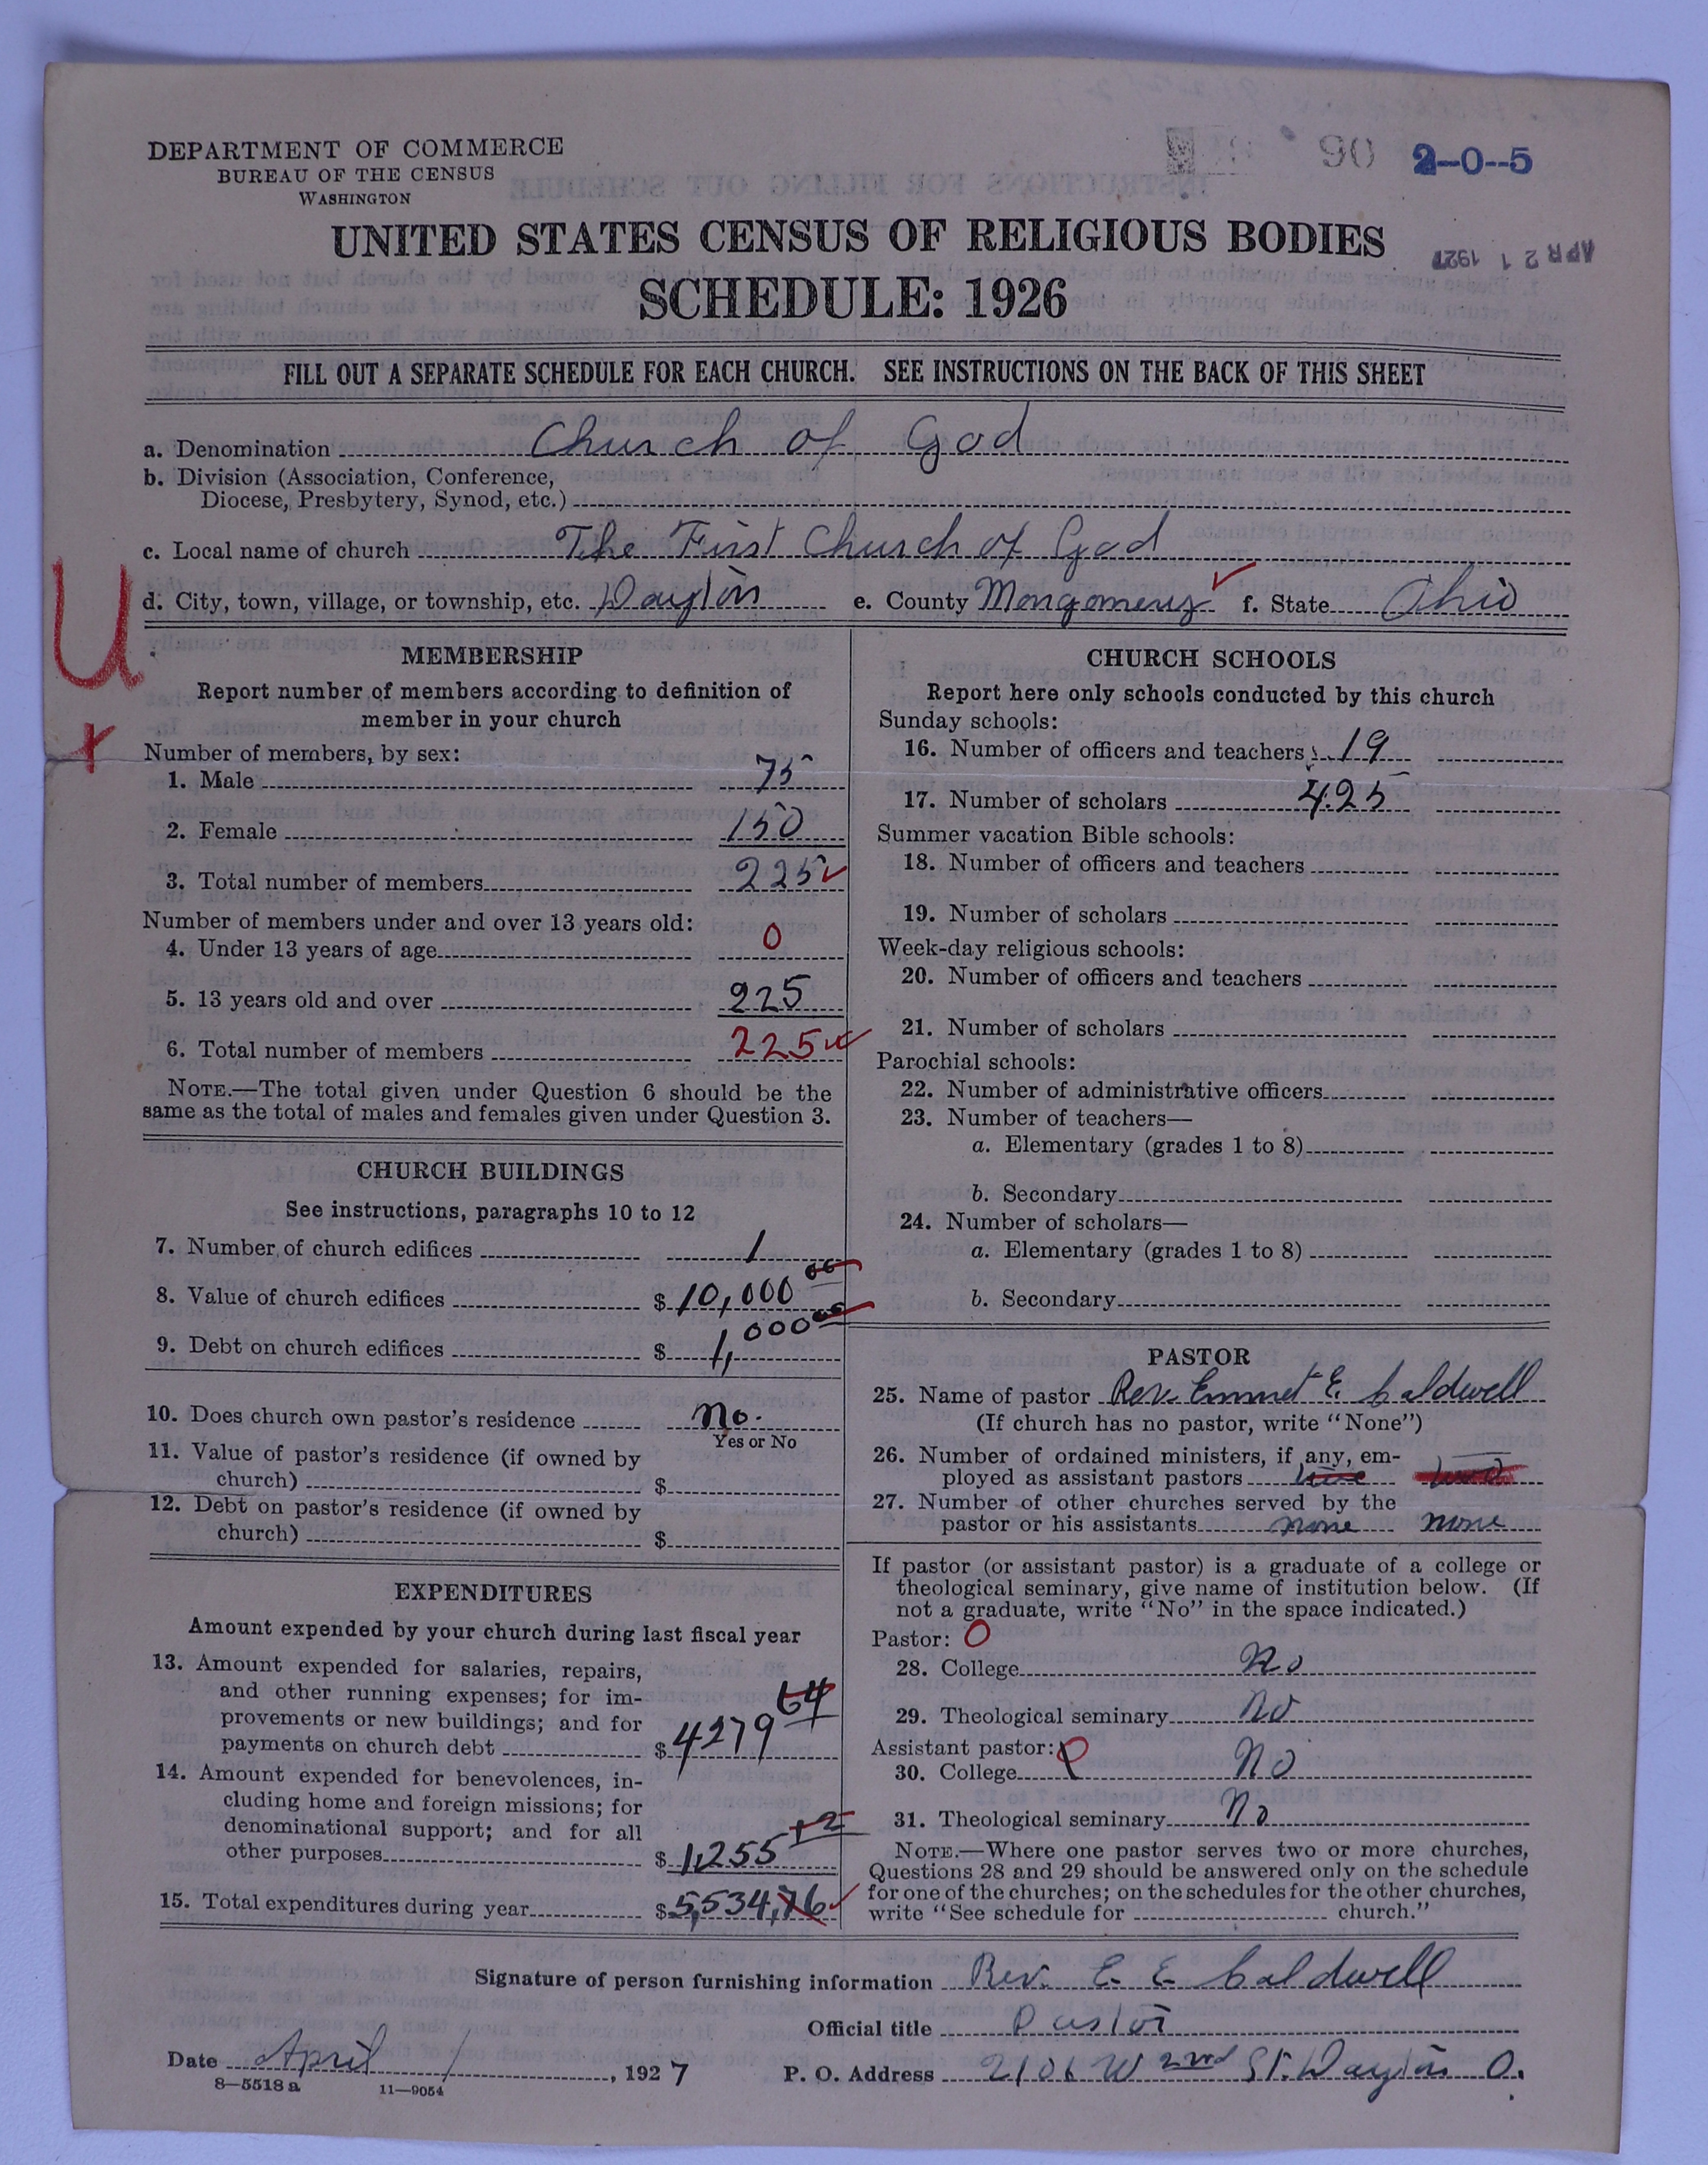 DEPARTMENT OF COMMERCE
BUREAU OF THE CENSUS
WASHINGTON
90 2-0--5
UNITED STATES CENSUS OF RELIGIOUS BODIES
APR 21 1927
SCHEDULE: 1926
FILL OUT A SEPARATE SCHEDULE FOR EACH CHURCH. SEE INSTRUCTIONS ON THE BACK OF THIS SHEET
a. Denomination Church of God
b. Division (Association, Conference,
Diocese, Presbytery, Synod, etc.)
c. Local name of church The First Church of God
d. City, town, village, or township, etc. Dayton e. County Mongomery f. State Ohio
U
MEMBERSHIP
Report number of members according to definition of
member in your church
Number of members, by sex:
1. Male 75
2. Female 150
3. Total number of members 225
Number of members under and over 13 years old:
4. Under 13 years of age 0
5. 13 years old and over 225
6. Total number of members 225
NOTE.—The total given under Question 6 should be the
same as the total of males and females given under Question 3.
CHURCH BUILDINGS
See instructions, paragraphs 10 to 12
7. Number of church edifices 1
8. Value of church edifices $ 10,000 00
9. Debt on church edifices $ 1,000 00
10. Does church own pastor's residence No.
Yes or No
11. Value of pastor's residence (if owned by
church) $
12. Debt on pastor's residence (if owned by
church) $
EXPENDITURES
Amount expended by your church during last fiscal year
13. Amount expended for salaries, repairs,
and other running expenses; for im-
provements or new buildings; and for
payments on church debt $ 4279 64
14. Amount expended for benevolences, in-
cluding home and foreign missions; for
denominational support; and for all
other purposes $ 1,255 12
15. Total expenditures during year $ 5,534,76
CHURCH SCHOOLS
Report here only schools conducted by this church
Sunday schools:
16. Number of officers and teachers 19
17. Number of scholars 425
Summer vacation Bible schools:
18. Number of officers and teachers
19. Number of scholars
Week-day religious schools:
20. Number of officers and teachers
21. Number of scholars
Parochial schools:
22. Number of administrative officers
23. Number of teachers—
a. Elementary (grades 1 to 8)
b. Secondary
24. Number of scholars—
a. Elementary (grades 1 to 8)
b. Secondary
PASTOR
25. Name of pastor Rev. Emmet E. Caldwell
(If church has no pastor, write "None")
26. Number of ordained ministers, if any, em-
ployed as assistant pastors
27. Number of other churches served by the
pastor or his assistants none none
If pastor (or assistant pastor) is a graduate of a college or
theological seminary, give name of institution below. (If
not a graduate, write "No" in the space indicated.)
Pastor: O
28. College No
29. Theological seminary No
Assistant pastor:
30. College No
31. Theological seminary No
NOTE.—Where one pastor serves two or more churches,
Questions 28 and 29 should be answered only on the schedule
for one of the churches; on the schedules for the other churches,
write "See schedule for church."
Signature of person furnishing information Rev. E. E. Caldwell
Official title Pastor
Date April 1, 1927 P. O. Address 2106 W 2nd St. Dayton O.
8—5518 a 11—9054